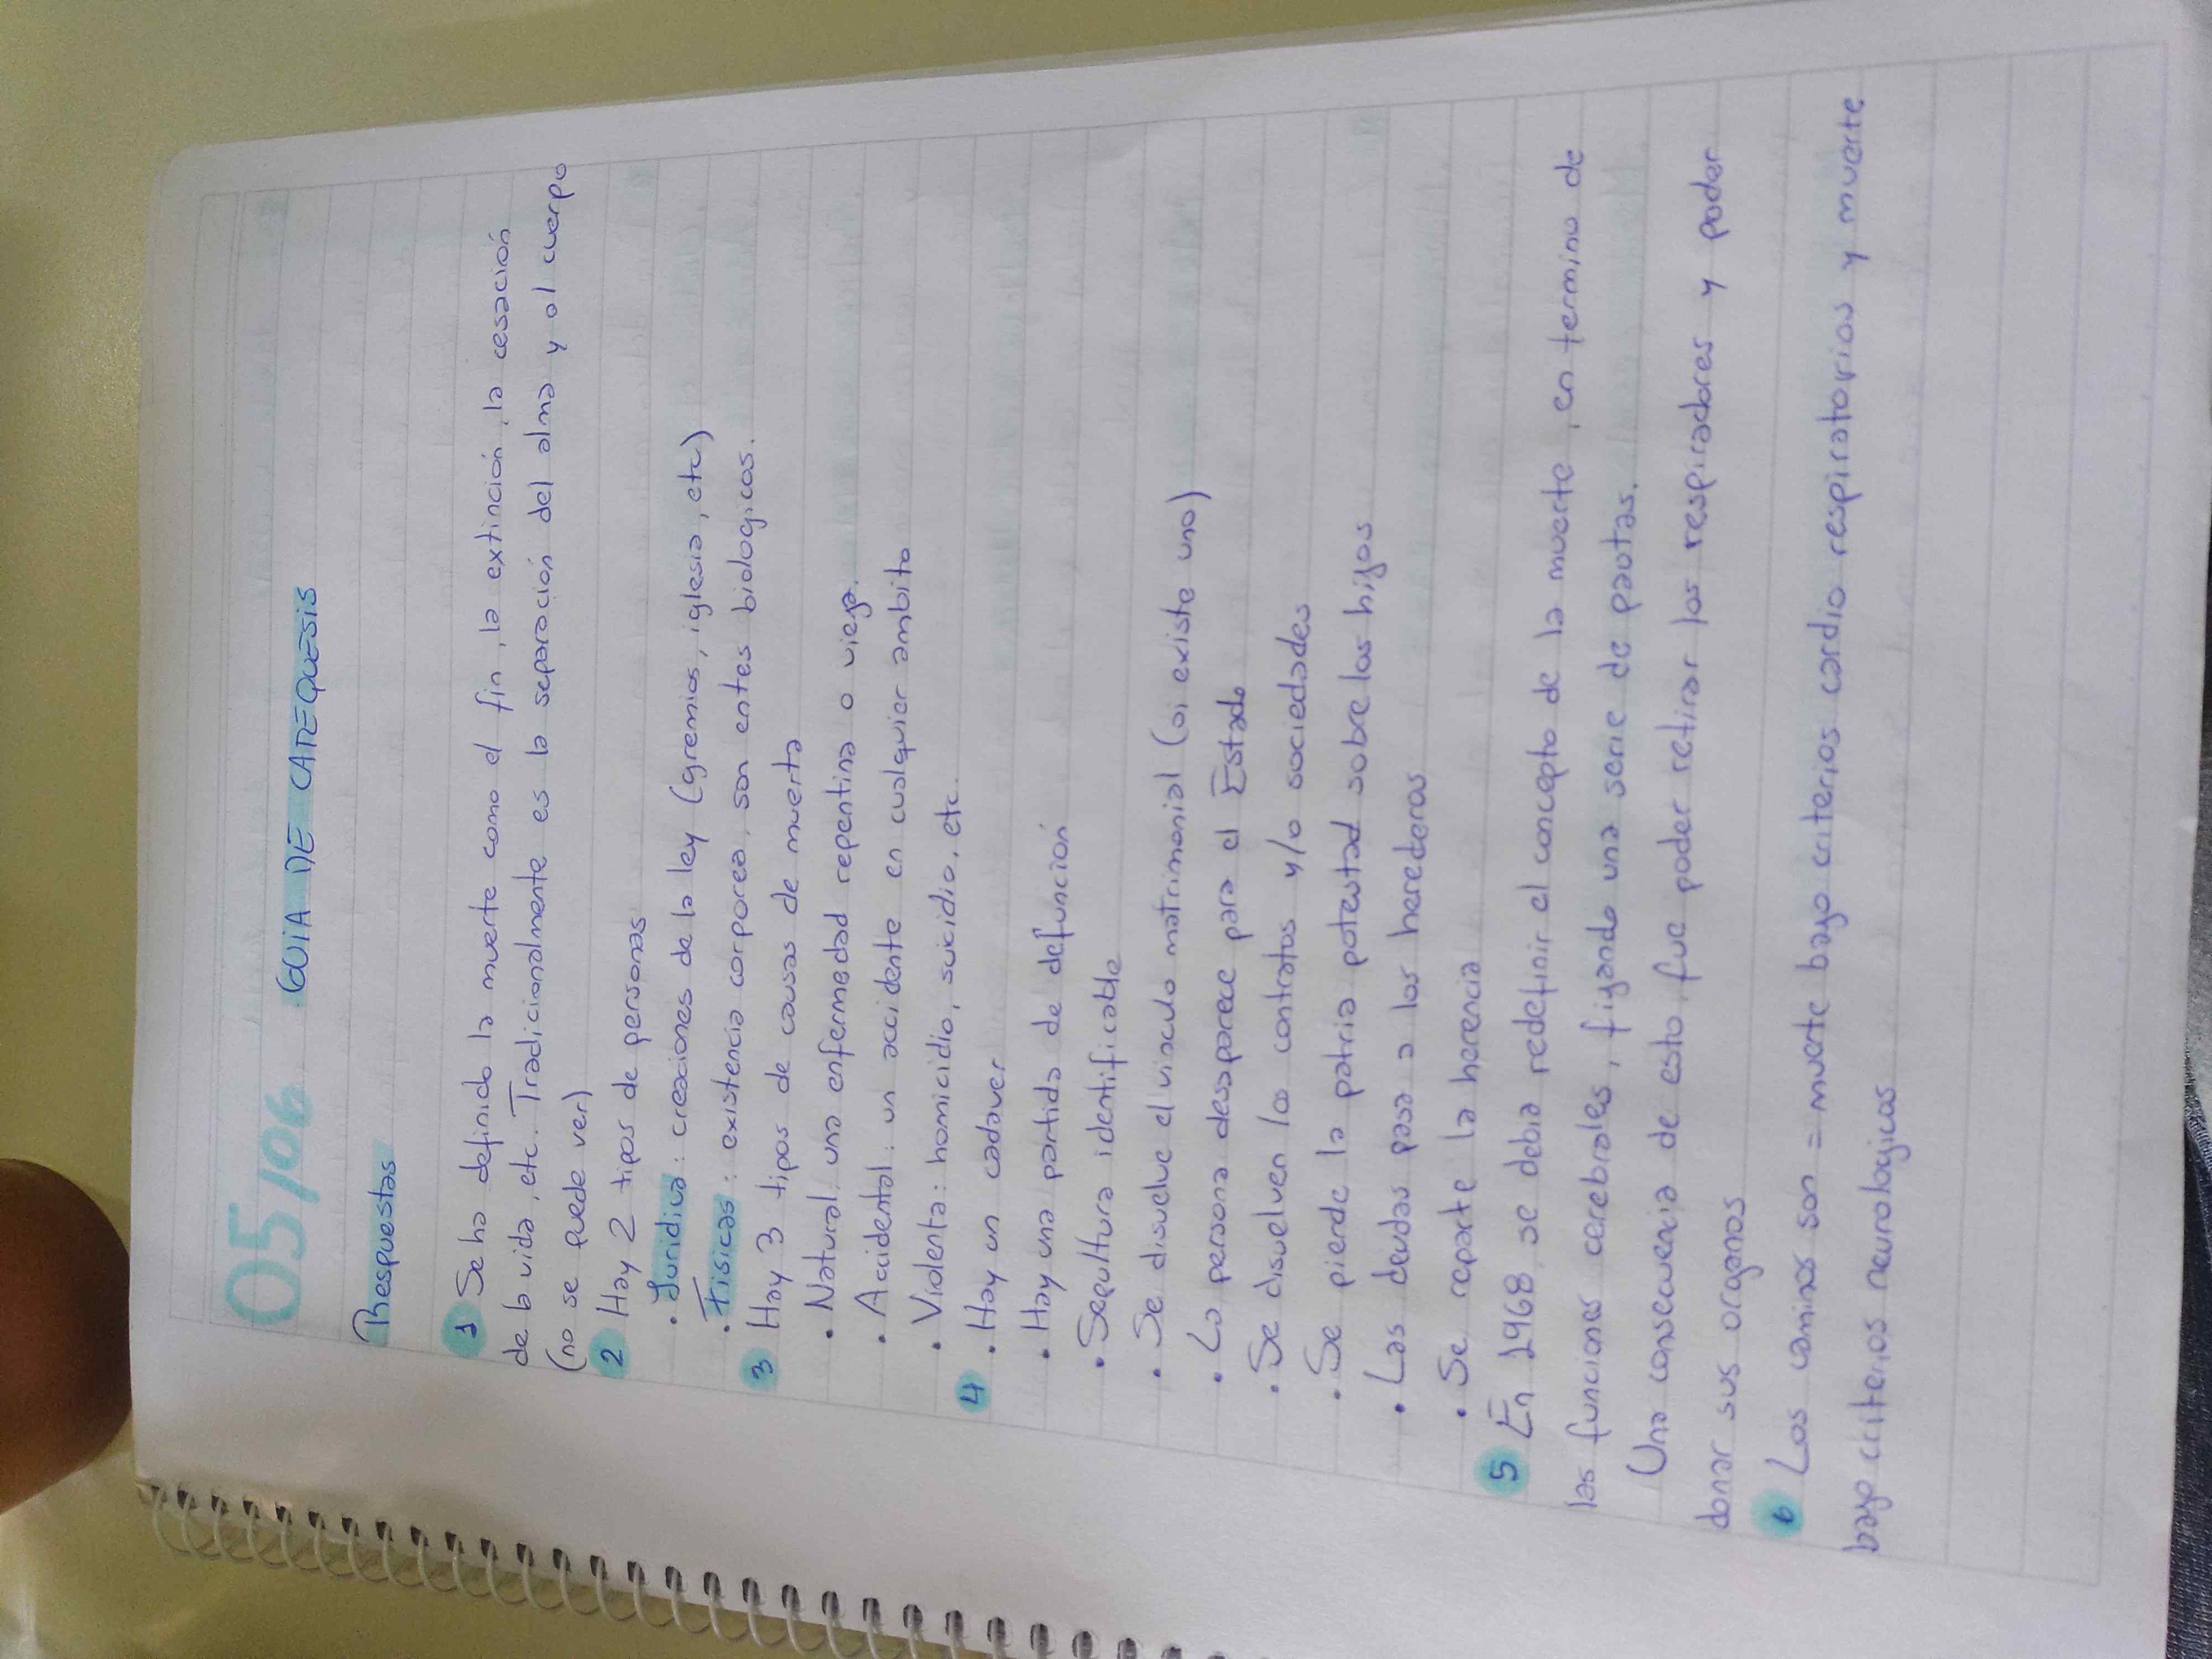 05/06 GUIA DE CATEQUESIS
Respuestas
1 Se ha definido la muerte como el fin, la extinción, la cesación
de la vida, etc. Tradicionalmente es la separación del alma y el cuerpo
(no se puede ver)
2 Hay 2 tipos de personas
• Juridica: creaciones de la ley (gremios, iglesia, etc)
• Fisicas: existencia corporea, son entes biologicos.
3 Hay 3 tipos de causas de muerta
• Natural: una enfermedad repentina o vieja.
• Accidental: un accidente en cualquier ambito
• Violenta: homicidio, suicidio, etc.
4 • Hay un cadaver
• Hay una partida de defunción
• Sepultura identificable
• Se disuelve el vinculo matrimonial (si existe uno)
• La persona desaparece para el Estado
• Se disuelven los contratos y/o sociedades
• Se pierde la patria potestad sobre los hijos
• Las deudas pasa a los herederos
• Se reparte la herencia
5 En 1968 se debia redefinir el concepto de la muerte, en termino de
las funciones cerebrales, fijando una serie de pautas.
Una consecuencia de esto fue poder retirar los respiradores y poder
donar sus organos
6 Los caminos son = muerte bajo criterios cardio respiratorios y muerte
bajo criterios neurologicos